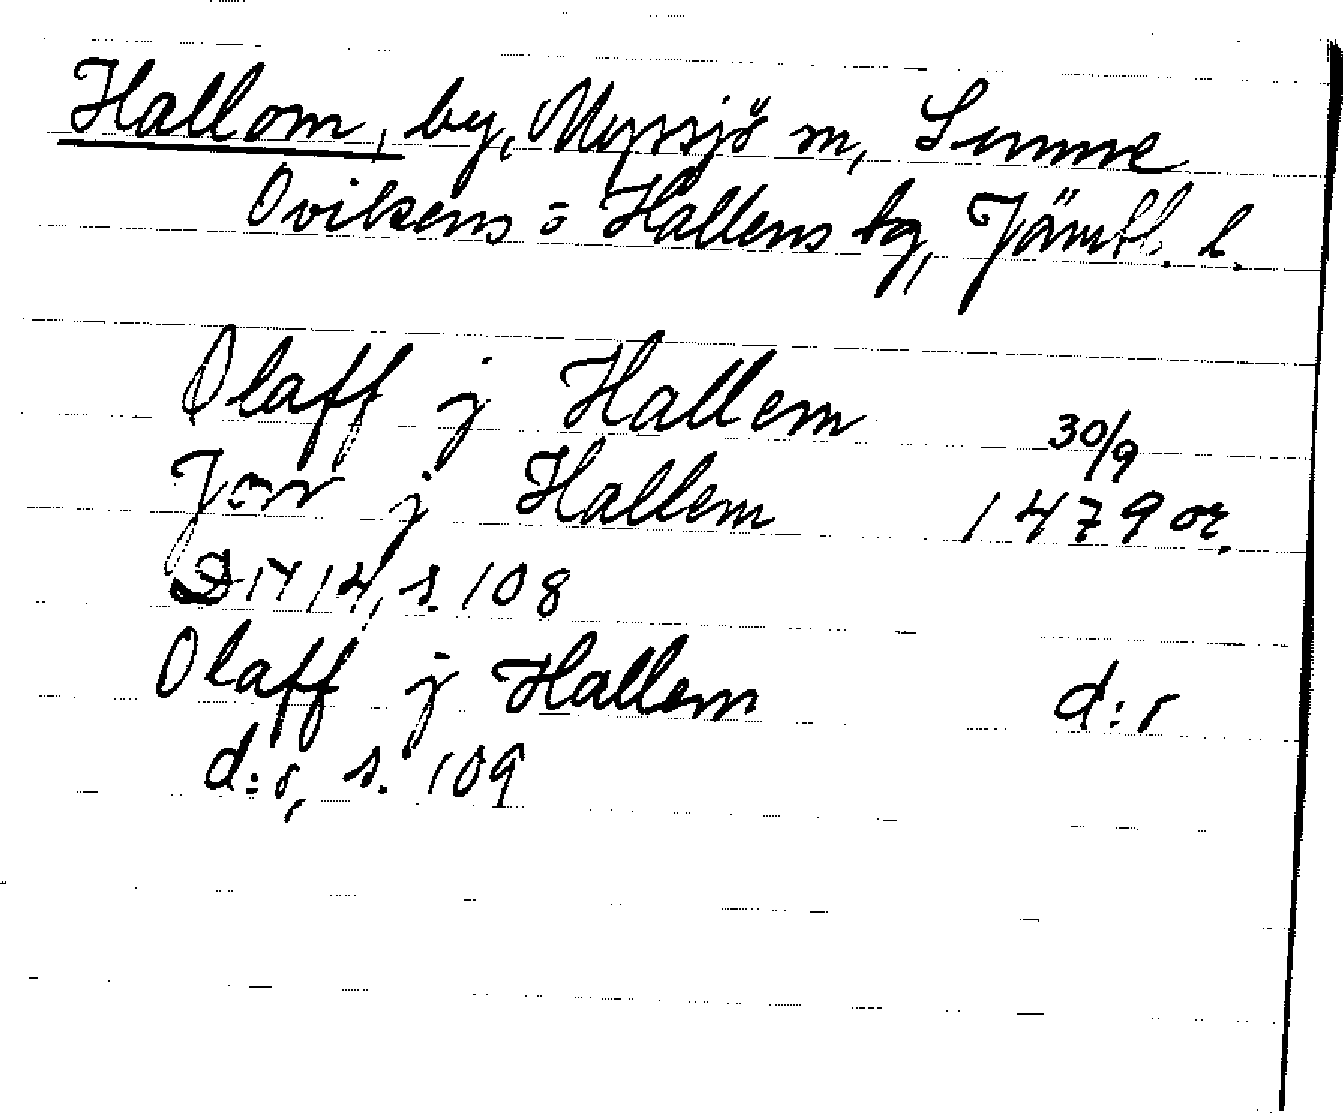 Hallom, by, Myssjö sn, Sunne
Ovikens o Hallens tg, Jämtl. l.
Olaff j Hallem 30/9
Jon j Hallem 1479 or.
DN 14, s. 108
Olaff j Hallem d:o
d:o, s. 109